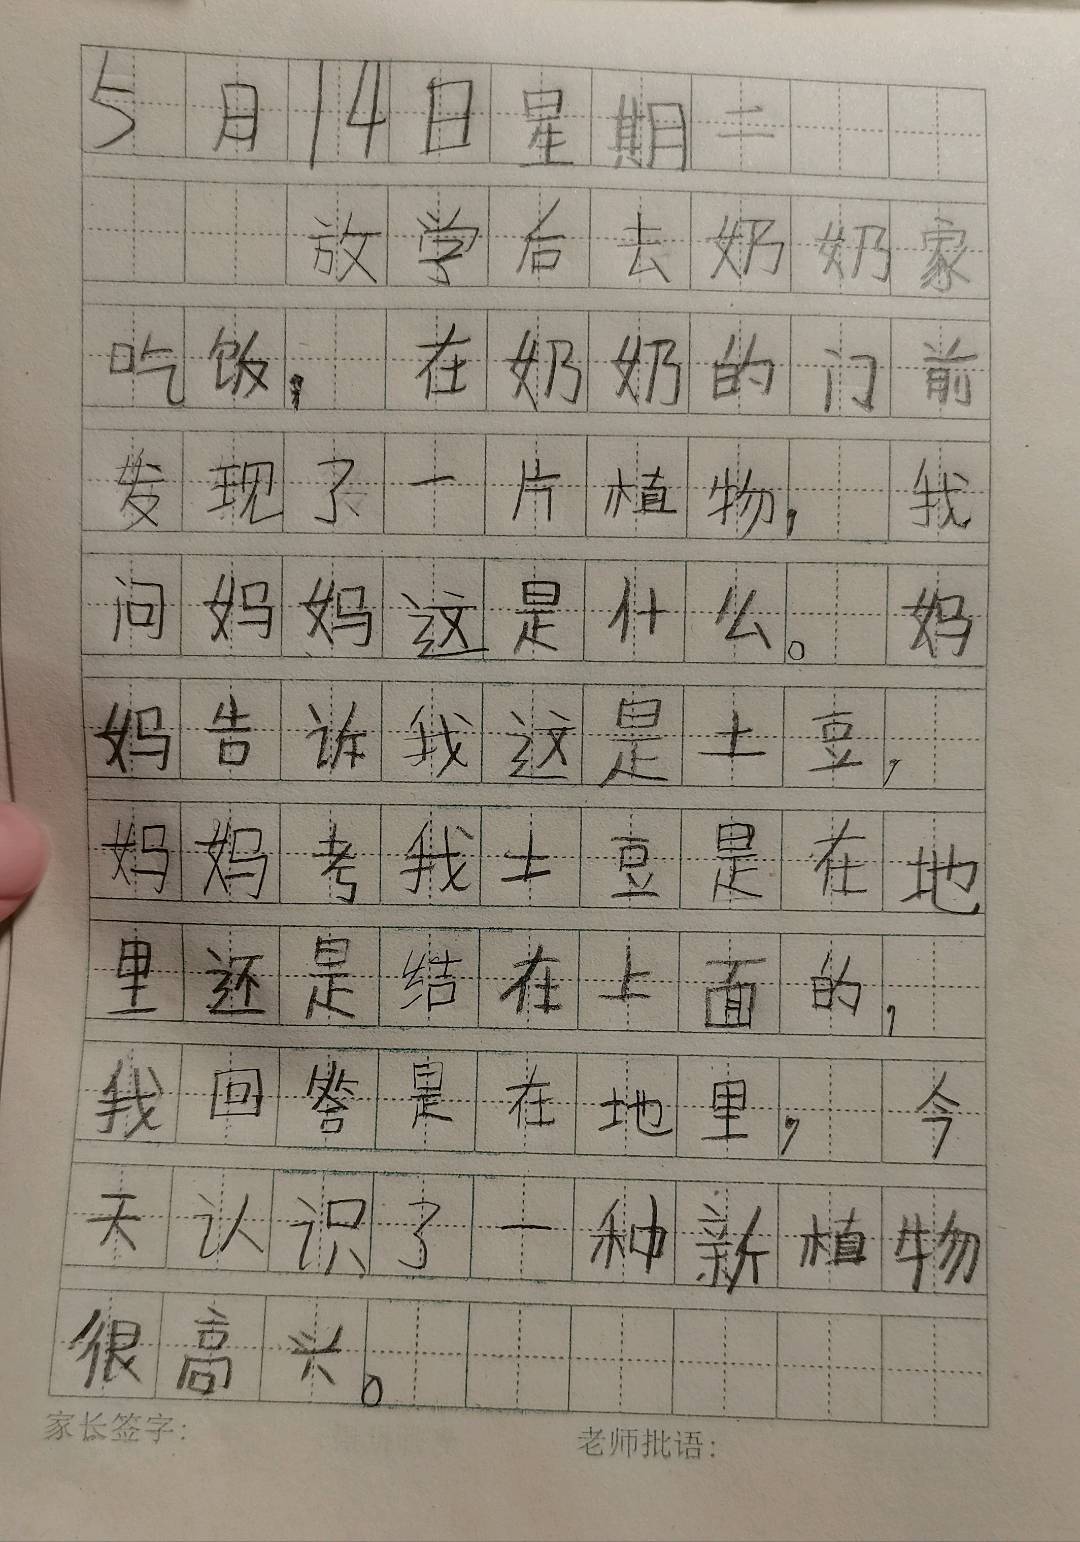 5月14日星期二
放学后去奶奶家
吃饭，在奶奶的门前
发现了一片植物，我
问妈妈这是什么。妈
妈告诉我这是土豆，
妈妈考我土豆是在地
里还是结在上面的，
我回答是在地里，今
天认识了一种新植物
很高兴。
家长签字： 老师批语：